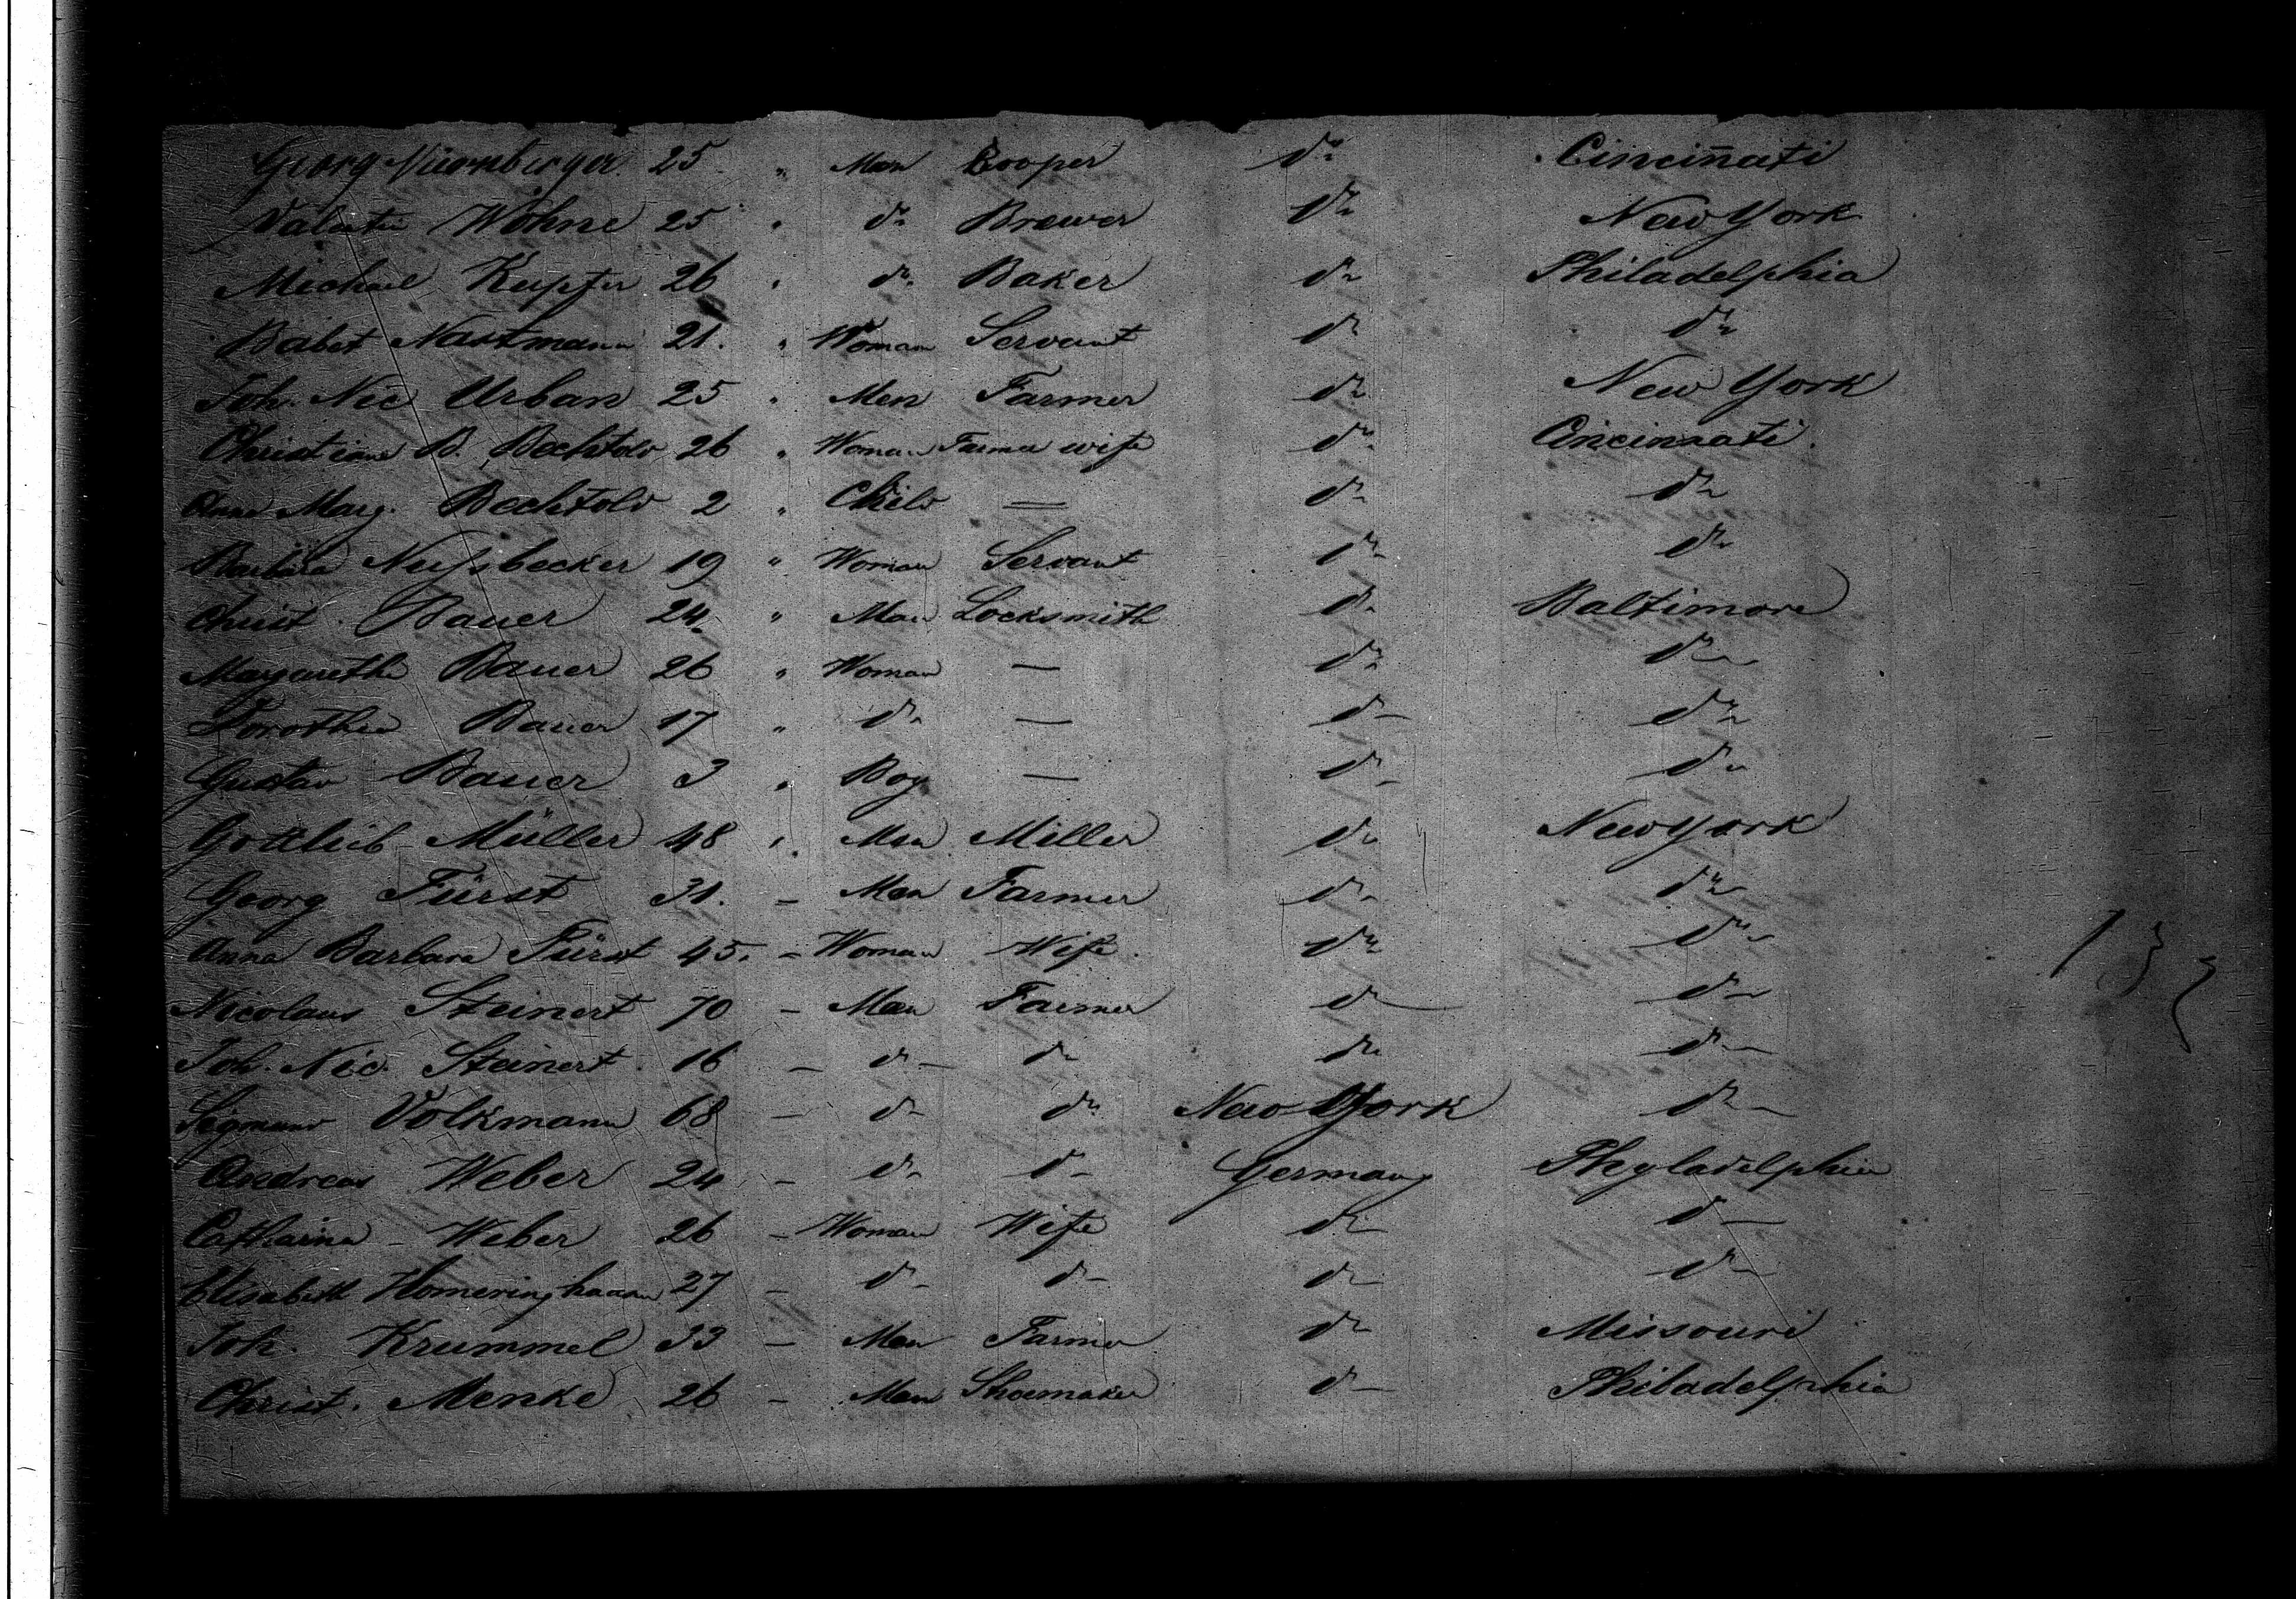 Georg Nürnberger. 25. " Man Cooper do Cincinnati
Valentin Wöhne 25 " do Brewer do New York
Michael Kupfer 26 " do Baker do Philadelphia
Babet Nastmann 21. " Woman Servant do do
Joh. Nic Urban 25 " Man Farmer do New York
Christiane B. Bechtold 26 " Woman Farmer wife do Cincinnati.
Anna Marg. Bechtold 2 " Child = do do
Barbara Neussbecker 19 " Woman Servant do do
Christ. Bauer 24 " Man Locksmith do Baltimore
Margaretha Bauer 26 " Woman — do do
Dorothea Bauer 17 " do — do do
Gustav Bauer 3 " Boy — do do
Gottlieb Müller 48 " Man Miller do New York
Georg Fürst 31. – Man Farmer do do
Anna Barbara Fürst 45. – Woman Wife do do
Nicolaus Steinert 70 – Man Farmer do do
Joh. Nic. Steinert. 16 – do do do do
Sigmund Volkmann 68 – do do New York do
Andreas Weber 24 – do do Germany Phyladelphia
Catharina Weber 26 – Woman Wife do do
Elisabeth 27 – do do do do
Joh. Krummel 33 – Man Farmer do Missouri
Christ. Menke 26 – Man Shoemaker do Philadelphia